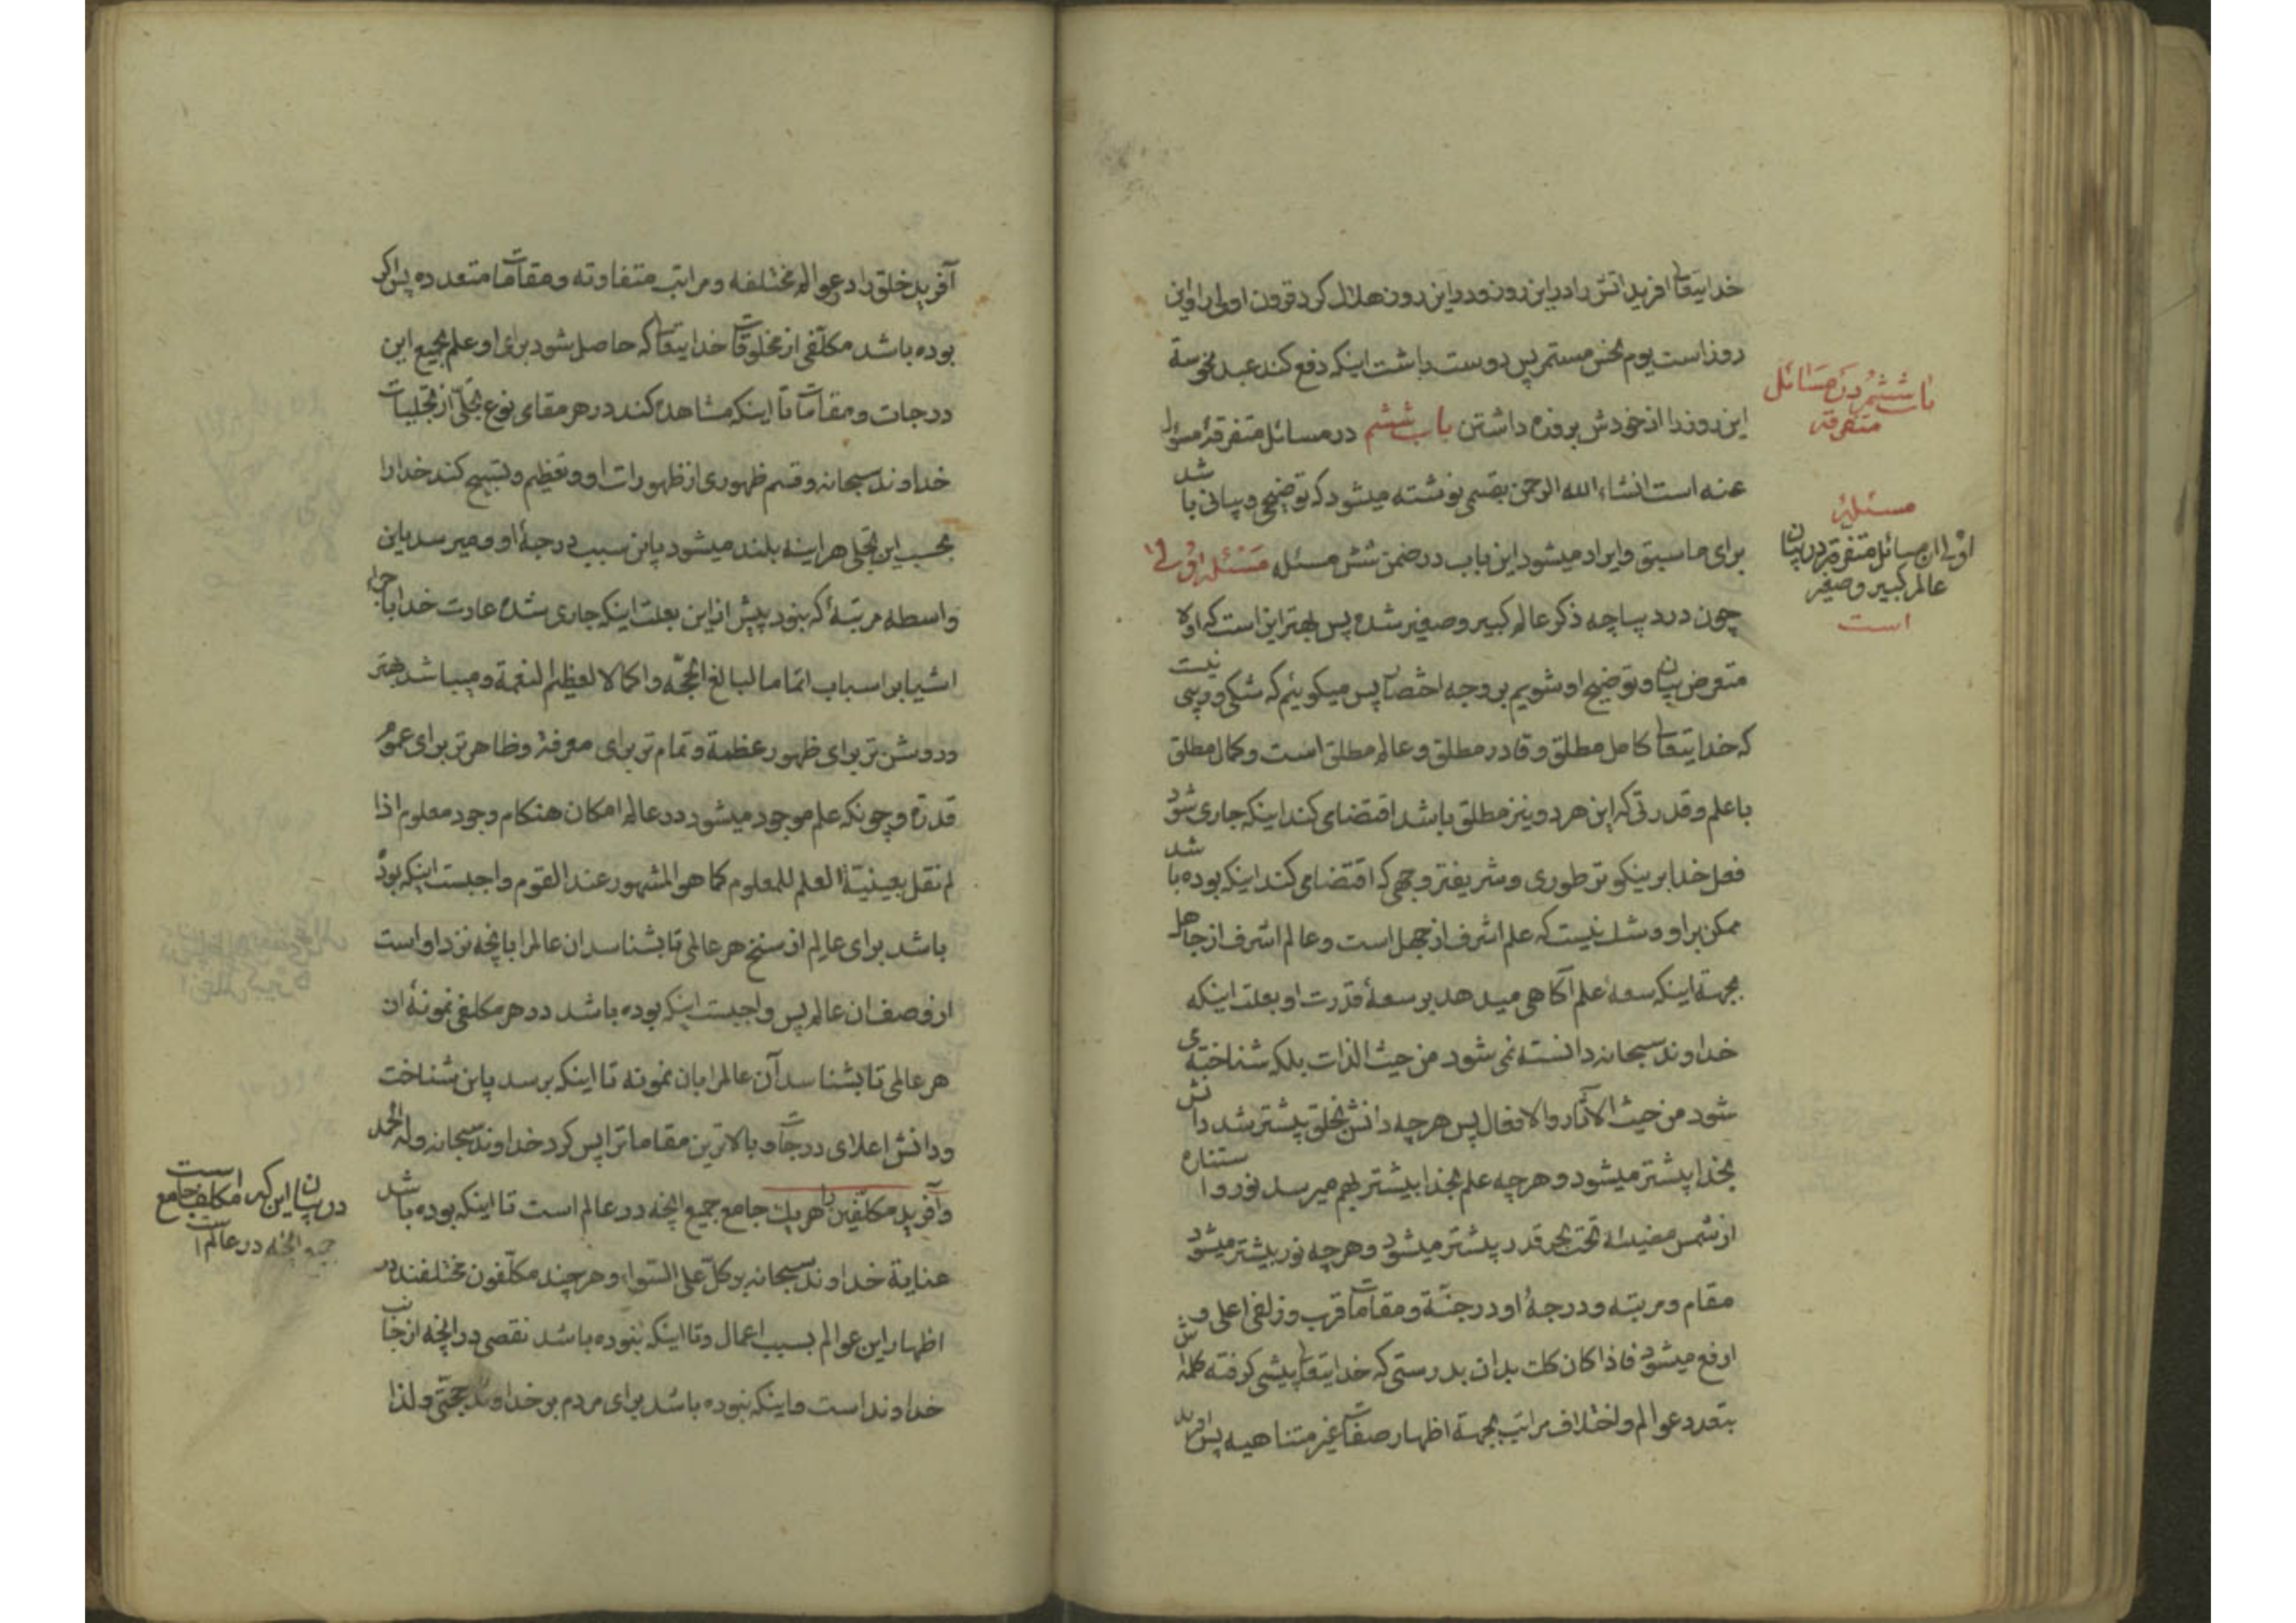 خدایتعالی افرید اتش را در این روز و در این روز هلاک کرد قرون اولی را و این
روز است یوم نحس مستمر پس دوست داشت اینکه دفع کند عبد نحوسة
این روز را از خودش بروزه داشتن باب ششم در مسائل متفرقهٔ مسؤل
عنه است انشاء الله الرحمن بقسمی نوشته میشود که توضیح و بیانی باشد
برای ما سبق و ایراد میشود این باب در ضمن شش مسئله مسئله اولی
چون در دیباچه ذکر عالم کبیر و صغیر شده پس بهتر این است که اولا
متعرض بیان و توضیح او شویم بر وجه اختصار پس میکوئیم که شکی و ریبی نیست
که خدایتعالی کامل مطلق و قادر مطلق و عالم مطلق است و کمال مطلق
با علم و قدرتی که این هر دو نیز مطلق باشد اقتضا می کند اینکه جاری شود
فعل خدا بر نیکو تر طوری و شریفتر وجهی که اقتضا می کند اینکه بوده باشد
ممکن بر او و شک نیست که علم اشرف از جهل است و عالم اشرف از جاهل
بجهة اینکه سعهٔ علم آکاهی میدهد بر سعهٔ قدرت او بعلت اینکه
خداوند سبحانه دانسته نمی شود من حیث الذات بلکه شناخته می
شود من حیث الآثار و الافعال پس هر چه دانش بخلق بیشتر شد دانش
بخدا بیشتر میشود و هر چه علم بخدا بیشتر بهم میرسد نور و استناره
از شمس مضیئهٔ تحت بحر قدر بیشتر میشود و هر چه نور بیشتر میشود
مقام و مرتبه و درجهٔ او در جنّة و مقامات قرب و زلفی اعلی و
ارفع میشود فاذا کان کلت بدان بدرستی که خدایتعالی پیشی کرفته کلمهٔ اش
بتعدد عوالم و اختلاف مراتب بجهة اظهار صفات غیر متناهیه پس افرید
باب ششم در مسائل
متفرقه
مسئلهٔ
اولی از مسائل متفرقه در بیان
عالم کبیر و صغیر
است
آفرید خلق را در عوالم مختلفه و مراتب متفاوته و مقامات متعدده پس اکر
بوده باشد مکلّفی از مخلوقات خدایتعالی که حاصل شود برای او علم بجمیع این
درجات و مقامات تا اینکه مشاهده کند در هر مقامی نوع تجلّی از تجلیات
خداوند سبحانه و قسم ظهوری از ظهورات او و تعظیم و تسبیح کند خدا را
بحسب این تجلی هراینه بلند میشود باین سبب درجهٔ او و میرسد باین
واسطه مرتبهٔ که نبود پیش از این بعلت اینکه جاری شده عادت خدا باجراء
اشیا بر اسباب اتماما لبالغ الحجّه و اکمالا لعظیم النعمة و میباشد بهتر
و روشن تر برای ظهور عظمة و تمام تر برای معرفة و ظاهر تر برای عموم
قدرة و چونکه علم موجود میشود در عالم امکان هنکام وجود معلوم اذا
لم نقل بعینیّة العلم للمعلوم کما هو المشهور عند القوم واجبست اینکه بوده
باشد برای عالم از سنخ هر عالمی تا بشناسد ان عالم را بانچه نزد او است
از وصف ان عالم پس واجبست اینکه بوده باشد در هر مکلفی نمونهٔ از
هر عالمی تا بشناسد آن عالم را بان نمونه تا اینکه برسد باین شناخت
و دانش اعلای درجات و بالاترین مقامات را پس کرد خداوند سبحانه وله الحمد
و آفرید مکلّفین را هر یک جامع جمیع انچه در عالم است تا اینکه بوده باشد
عنایة خداوند سبحانه بر کلّ علی السّواء و هر چند مکلّفون مختلفند در
اظهار این عوالم بسبب اعمال و تا اینکه نبوده باشد نقصی در انچه از جانب
خداوند است و اینکه نبوده باشد برای مردم بر خداوند حجّتی و لذا
در بیان این که مکلف جامع
جمیع انچه در عالم است